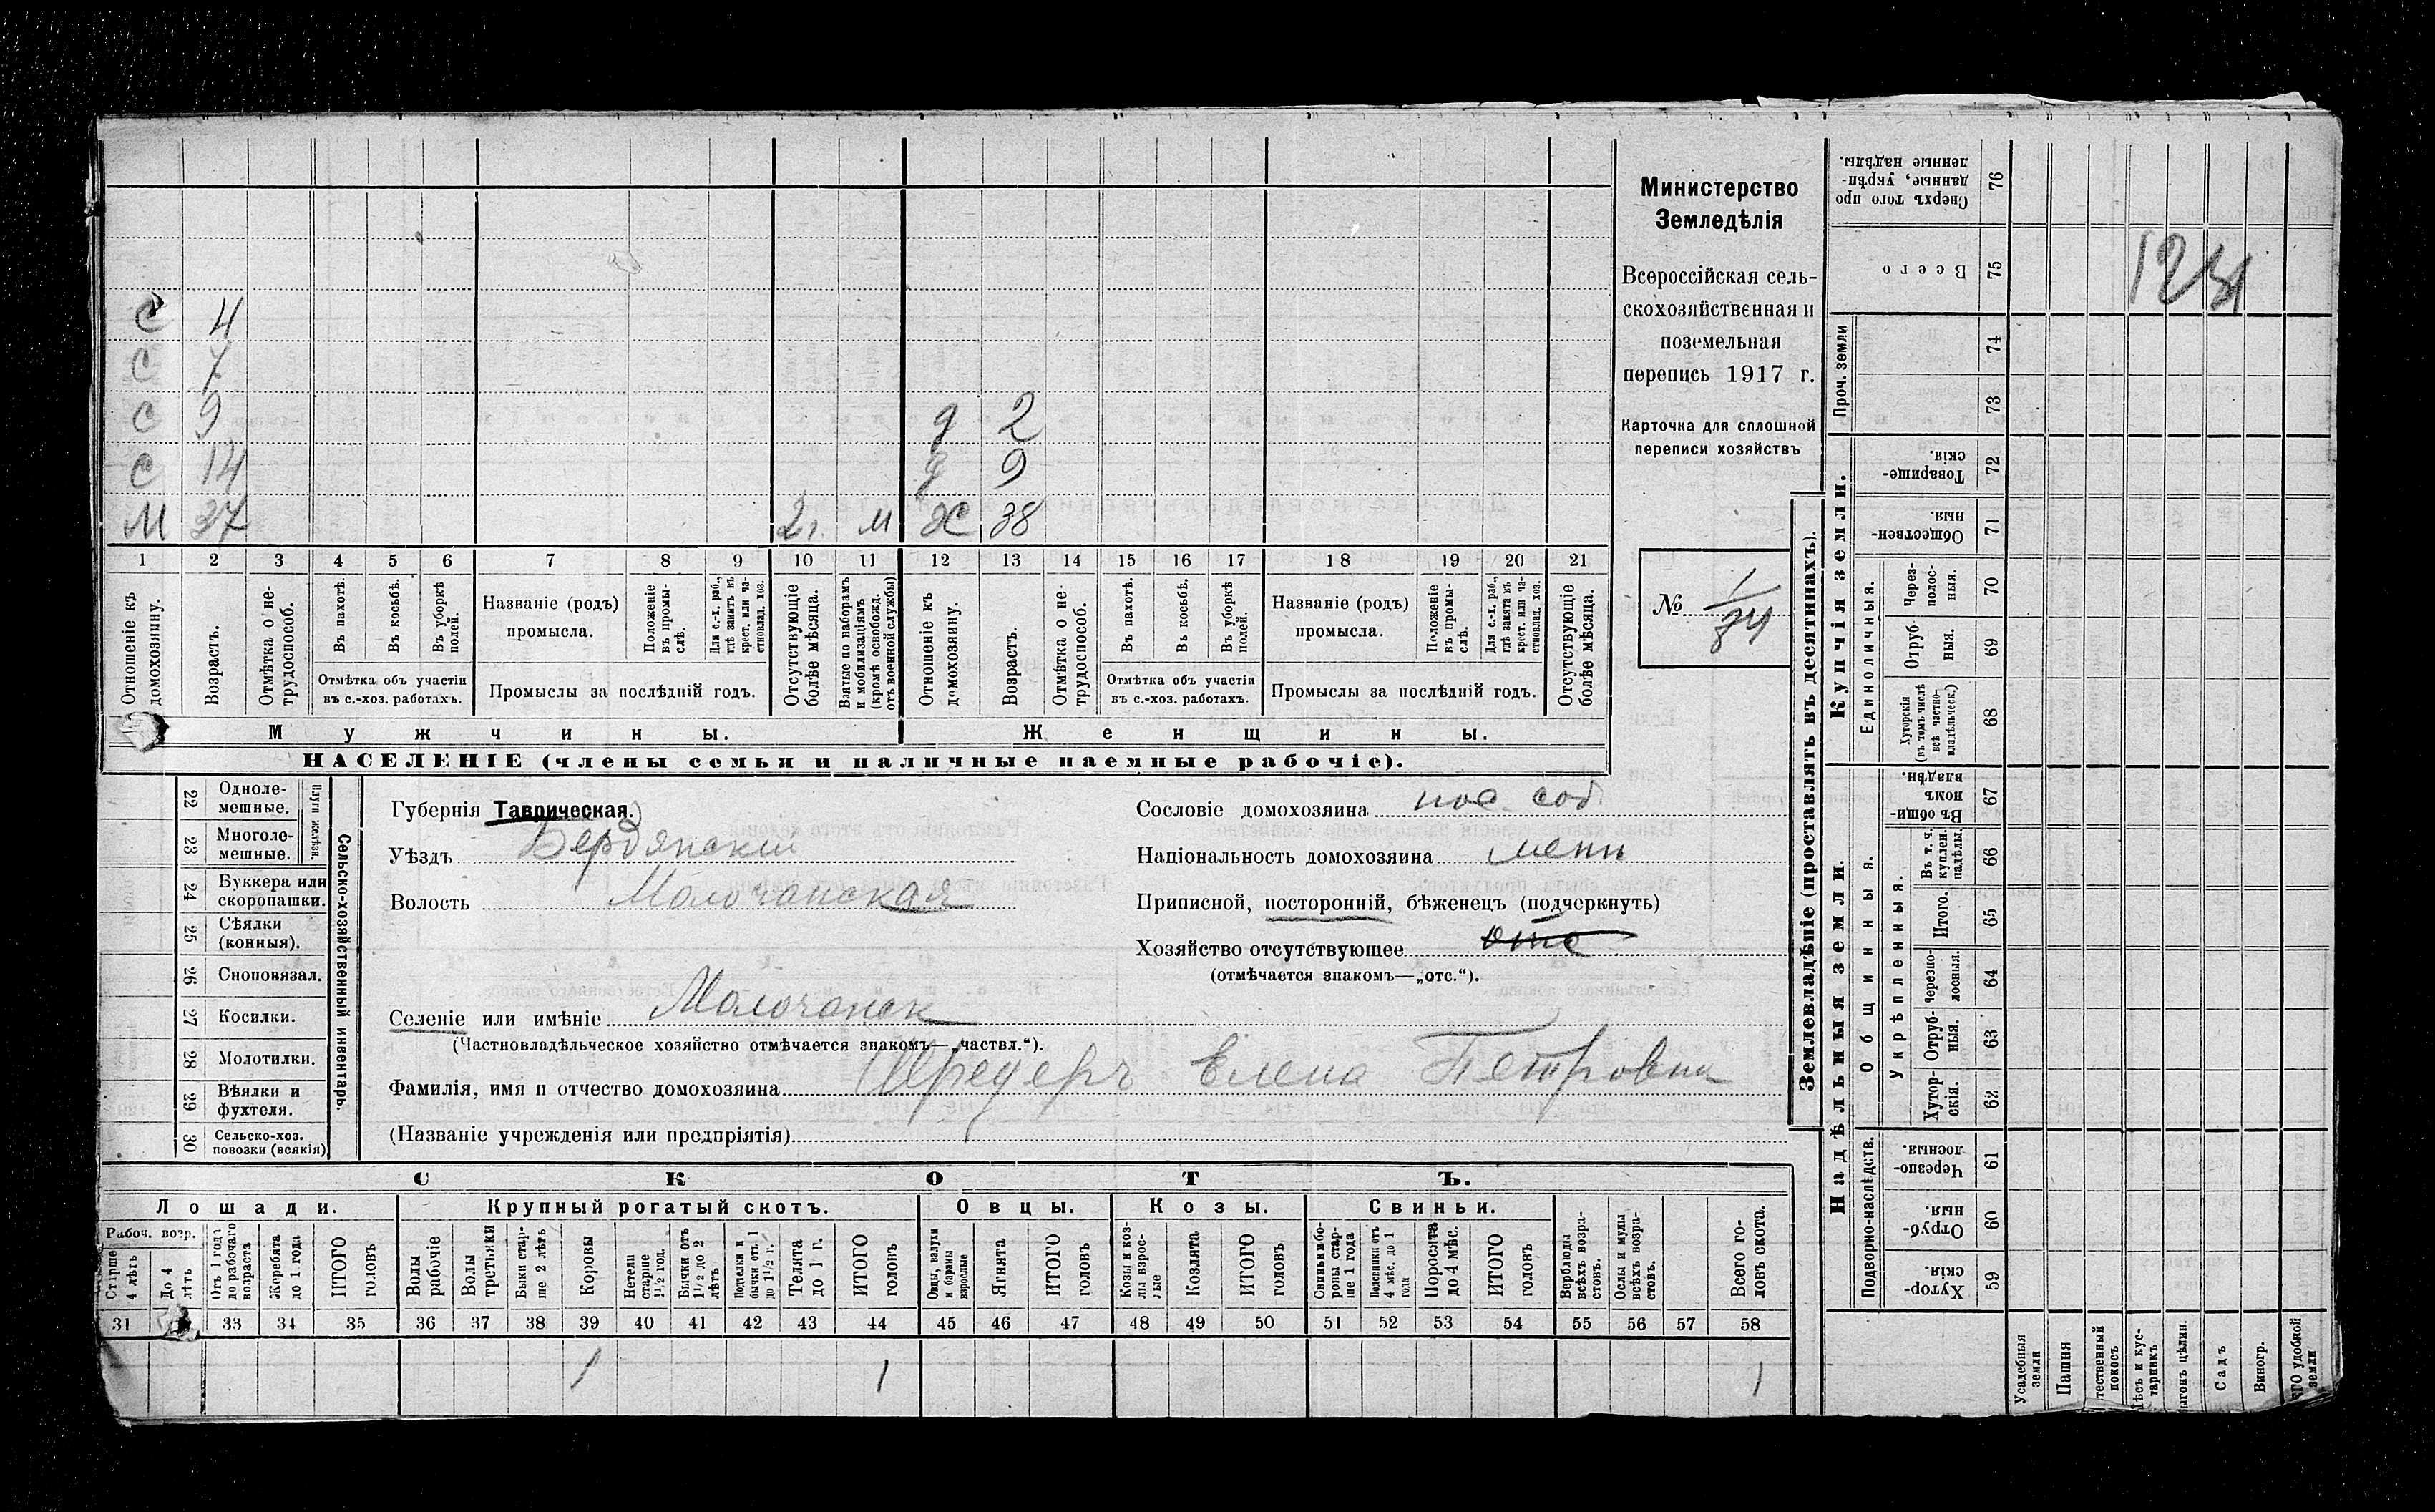 С 4
С 7
С 9 д 2
С 14 д 9
М 37 2г. м Ж 38
1 2 3 4 5 6 7 8 9 10 11 12 13 14 15 16 17 18 19 20 21
Отношеніе къ домохозяину.
Возрастъ.
Отмѣтка о нетрудоспособ.
Въ пахотѣ.
Въ косьбѣ.
Въ уборкѣ полей.
Отмѣтка объ участіи
въ с.-хоз. работахъ.
Названіе (родъ)
промысла.
Положеніе въ промыслѣ.
Для с.-х. раб., гдѣ занятъ въ крест. или частновлад. хоз.
Промыслы за послѣдній годъ.
Отсутствующіе болѣе мѣсяца.
Взятые по наборамъ и мобилизаціямъ (кромѣ освобожд. отъ военной службы)
Отношеніе къ домохозяину.
Возрастъ.
Отмѣтка о нетрудоспособ.
Въ пахотѣ.
Въ косьбѣ.
Въ уборкѣ полей.
Отмѣтка объ участіи
въ с.-хоз. работахъ.
Названіе (родъ)
промысла.
Положеніе въ промыслѣ.
Для с.-х. раб., гдѣ занята въ крест. или частновлад. хоз.
Промыслы за послѣдній годъ.
Отсутствующіе болѣе мѣсяца.
Мужчины. Женщины.
НАСЕЛЕНІЕ (члены семьи и наличные наемные рабочіе).
Министерство
Земледѣлія
Всероссійская сель-
скохозяйственная и
поземельная
перепись 1917 г.
Карточка для сплошной
переписи хозяйствъ
№ 1/84
22 Одноле-
мешные.
23 Многоле-
мешные.
Плуги желѣзн.
24 Буккера или
скоропашки.
25 Сѣялки
(конныя).
26 Сноповязал.
27 Косилки.
28 Молотилки.
29 Вѣялки и
фухтеля.
30 Сельско-хоз.
повозки (всякія)
Сельско-хозяйственный инвентарь.
Губернія Таврическая.
Уѣздъ Бердянскій
Волость Молочанская
Селеніе или имѣніе Молочанск
(Частновладѣльческое хозяйство отмѣчается знакомъ—„частвл.“).
Фамилія, имя и отчество домохозяина Шредеръ Елена Петровна
(Названіе учрежденія или предпріятія)
Сословіе домохозяина пос. соб.
Національность домохозяина менн
Приписной, посторонній, бѣженецъ (подчеркнуть)
Хозяйство отсутствующее отс
(отмѣчается знакомъ—„отс.“).
СКОТЪ.
Лошади. Крупный рогатый скотъ. Овцы. Козы. Свиньи.
Рабоч. возр.
Старше 4 лѣтъ
До 4 лѣтъ
Отъ 1 года до рабочаго возраста
Жеребята до 1 года
ИТОГО головъ
Волы рабочіе
Волы третьяки
Быки старше 2 лѣтъ
Коровы
Нетели старше 1½ год.
Бычки отъ 1½ до 2 лѣтъ
Подтелки и бычки отъ 1 до 1½ г.
Телята до 1 г.
ИТОГО головъ
Овцы, валухи и бараны взрослые
Ягнята
ИТОГО головъ
Козы и козлы взрослые
Козлята
ИТОГО головъ
Свиньи и боровы старше 1 года
Подсвинки отъ 4 мѣс. до 1 года
Поросята до 4 мѣс.
ИТОГО головъ
Верблюды всѣхъ возрастовъ.
Ослы и мулы всѣхъ возрастовъ.
Всего головъ скота.
31 33 34 35 36 37 38 39 40 41 42 43 44 45 46 47 48 49 50 51 52 53 54 55 56 57 58
1 1 1
Землевладѣніе (проставлять въ десятинахъ).
Надѣльныя земли. Купчія земли. Проч. земли
Подворно-наслѣдств.
Общинныя.
Укрѣпленныя.
Единоличныя.
Сверхъ того проданные, укрѣпленные надѣлы. 76
Всего 75
74
73
Товарищескія. 72
Общественныя. 71
Черезполосныя. 70
Отрубныя. 69
Хуторскія (въ томъ числѣ всѣ частновладѣльческ.) 68
Въ общинномъ владѣн. 67
Въ т. ч. куплен. надѣлы. 66
Итого. 65
Черезполосныя. 64
Отрубныя. 63
Хуторскія. 62
Черезполосныя 61
Отрубныя 60
Хуторскія. 59
Усадебныя земли
Пашня
тественный покосъ
ѣсъ и кустарникъ
ыгонъ цѣлин.
Садъ
Виногр.
ГО удобной земли